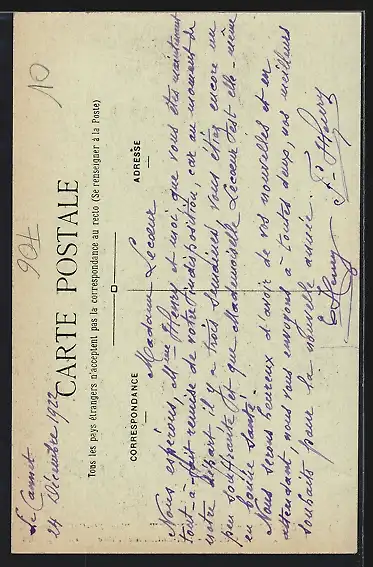 Le Cannet
24 Décembre 1922
904
10
CARTE POSTALE
Tous les pays étrangers n'acceptent pas la correspondance au recto (Se renseigner à la Poste)
CORRESPONDANCE
ADRESSE
Madame Lecœur
Nous espérons, Mme Henry et moi, que vous êtes maintenant
tout-à-fait remise de votre indisposition, car au moment de
notre départ il y a trois semaines vous étiez encore un
peu souffrante, et que Mademoiselle Lecœur est elle-même
en bonne santé.
Nous serons heureux d'avoir de vos nouvelles et en
attendant nous vous envoyons à toutes deux, nos meilleurs
souhaits pour la nouvelle année.
Henry Henry